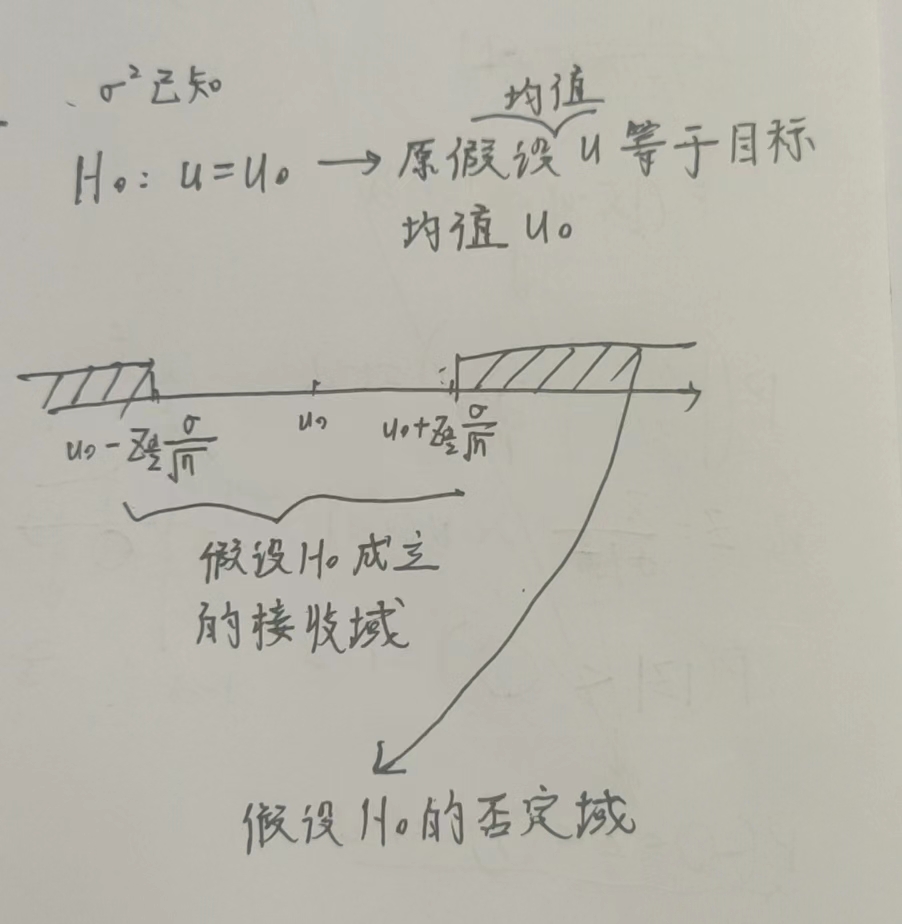 σ²已知
均值
H₀: u=u₀ → 原假设 u 等于目标
均值 u₀
u₀ - Z_{α/2} σ/√n
u₀
u₀+Z_{α/2} σ/√n
假设H₀成立
的接收域
假设H₀的否定域